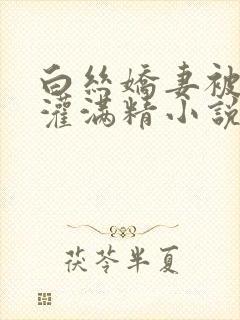 白丝嬌妻被
灌满精小説
茯苓半夏